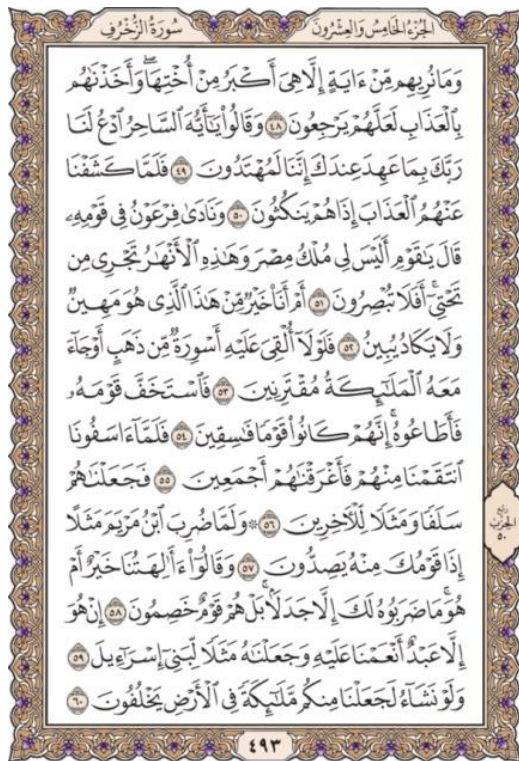 الجُزْءُ الخَامِسُ وَالعِشْرُونَ
سُورَةُ الزُّخْرُفِ
وَمَا نُرِيهِم مِّنْ ءَايَةٍ إِلَّا هِىَ أَكْبَرُ مِنْ أُخْتِهَا ۖ وَأَخَذْنَٰهُم
بِالْعَذَابِ لَعَلَّهُمْ يَرْجِعُونَ ٤٨ وَقَالُوا۟ يَٰٓأَيُّهَ السَّاحِرُ ادْعُ لَنَا
رَبَّكَ بِمَا عَهِدَ عِندَكَ إِنَّنَا لَمُهْتَدُونَ ٤٩ فَلَمَّا كَشَفْنَا
عَنْهُمُ الْعَذَابَ إِذَا هُمْ يَنكُثُونَ ٥٠ وَنَادَىٰ فِرْعَوْنُ فِى قَوْمِهِۦ
قَالَ يَٰقَوْمِ أَلَيْسَ لِى مُلْكُ مِصْرَ وَهَٰذِهِ الْأَنْهَٰرُ تَجْرِى مِن
تَحْتِىٓ ۖ أَفَلَا تُبْصِرُونَ ٥١ أَمْ أَنَا۠ خَيْرٌ مِّنْ هَٰذَا الَّذِى هُوَ مَهِينٌ
وَلَا يَكَادُ يُبِينُ ٥٢ فَلَوْلَآ أُلْقِىَ عَلَيْهِ أَسْوِرَةٌ مِّن ذَهَبٍ أَوْ جَآءَ
مَعَهُ الْمَلَٰٓئِكَةُ مُقْتَرِنِينَ ٥٣ فَاسْتَخَفَّ قَوْمَهُۥ
فَأَطَاعُوهُ ۚ إِنَّهُمْ كَانُوا۟ قَوْمًا فَٰسِقِينَ ٥٤ فَلَمَّآ ءَاسَفُونَا
انتَقَمْنَا مِنْهُمْ فَأَغْرَقْنَٰهُمْ أَجْمَعِينَ ٥٥ فَجَعَلْنَٰهُمْ
سَلَفًا وَمَثَلًا لِّلْءَاخِرِينَ ٥٦ ۞ وَلَمَّا ضُرِبَ ابْنُ مَرْيَمَ مَثَلًا
إِذَا قَوْمُكَ مِنْهُ يَصِدُّونَ ٥٧ وَقَالُوٓا۟ ءَأَٰلِهَتُنَا خَيْرٌ أَمْ
هُوَ ۚ مَا ضَرَبُوهُ لَكَ إِلَّا جَدَلًۢا ۚ بَلْ هُمْ قَوْمٌ خَصِمُونَ ٥٨ إِنْ هُوَ
إِلَّا عَبْدٌ أَنْعَمْنَا عَلَيْهِ وَجَعَلْنَٰهُ مَثَلًا لِّبَنِىٓ إِسْرَٰٓءِيلَ ٥٩
وَلَوْ نَشَآءُ لَجَعَلْنَا مِنكُم مَّلَٰٓئِكَةً فِى الْأَرْضِ يَخْلُفُونَ ٦٠
ربع
الحزب
٥٠
٤٩٣